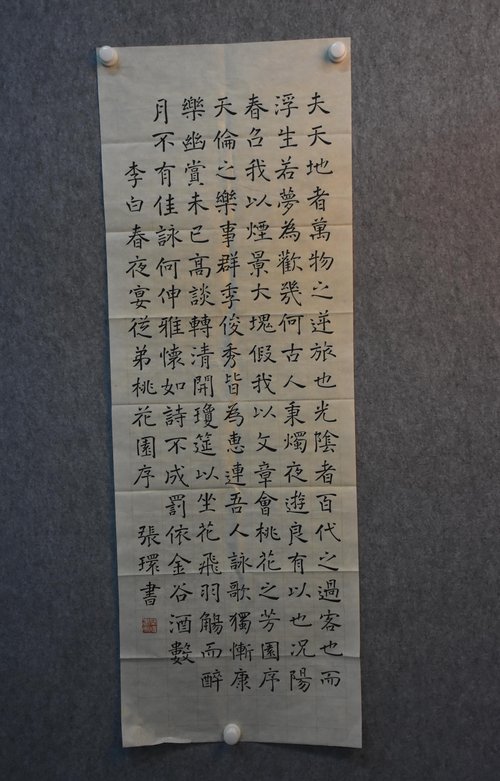 夫天地者萬物之逆旅也光陰者百代之過客也而
浮生若夢為歡幾何古人秉燭夜遊良有以也況陽
春召我以煙景大塊假我以文章會桃花之芳園序
天倫之樂事群季俊秀皆為惠連吾人詠歌獨慚康
樂幽賞未已高談轉清開瓊筵以坐花飛羽觴而醉
月不有佳詠何伸雅懷如詩不成罰依金谷酒數
李白春夜宴從弟桃花園序 張環書